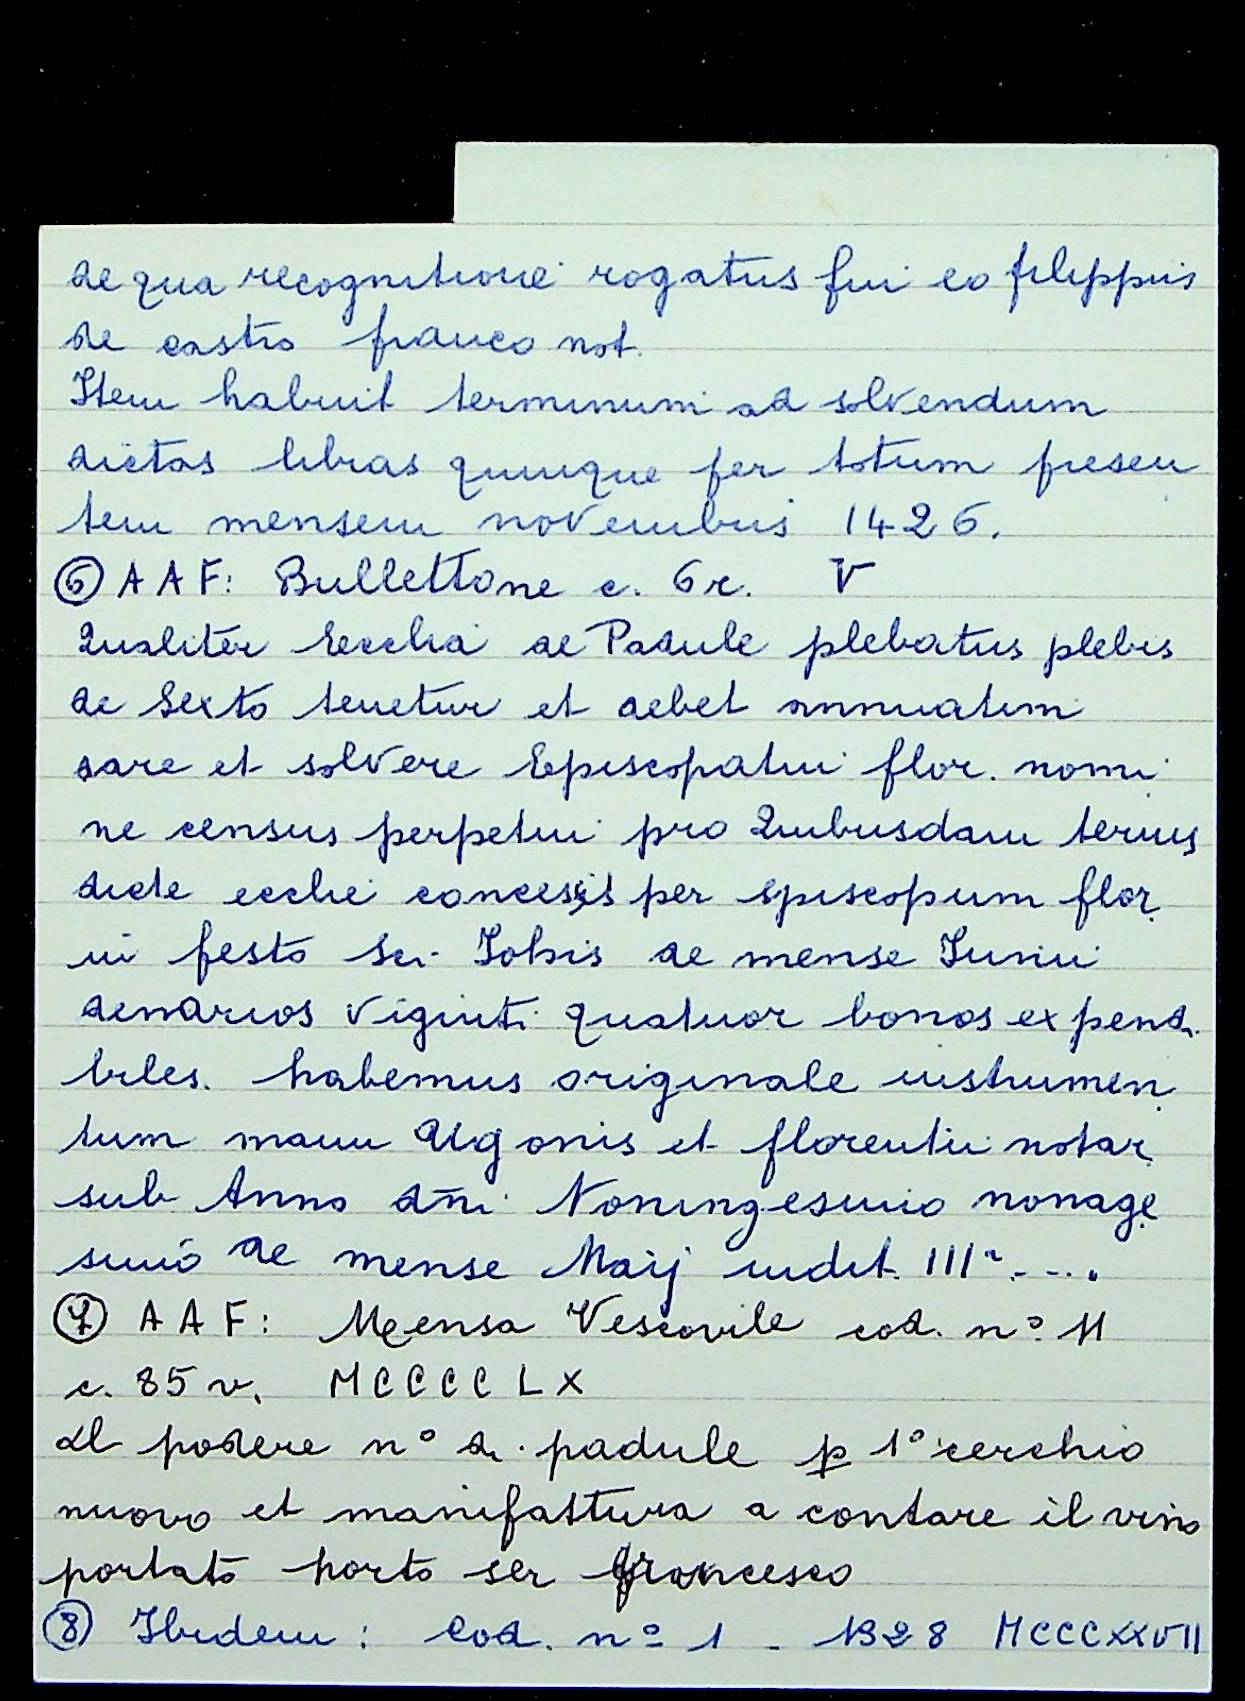 de qua recognitione rogatus fui eo filippus
de castro franco not.
Item habuit terminum ad solvendum
dictas libras quinque per totum presen
tem mensem novembris 1426.
⑥ AAF: Bullettone c. 6r. V
Qualiter Ecclia de Padule plebatus plebis
de Sexto tenetur et debet annuatim
dare et solvere Episcopatui flor. nomi
ne census perpetui pro Quibusdam terris
dicte ecclie concessis per episcopum flor.
in festo Sci. Johis de mense Junii
denarios viginti quatuor bonos expendi
biles. habemus originale instrumen
tum manu Ugonis et florentii notar.
sub Anno dñi Noningesimo nonage
simo de mense Maij indit. IIIª....
⑦ AAF: Mensa Vescovile cod. n° 11
c. 85 v. MCCCCLX
Al podere n° di padule p 1° cerchio
nuovo et manifattura a contare il vino
portato horto ser francesco
⑧ Ibidem: Cod. n° 1 - 1328 MCCCXXVII